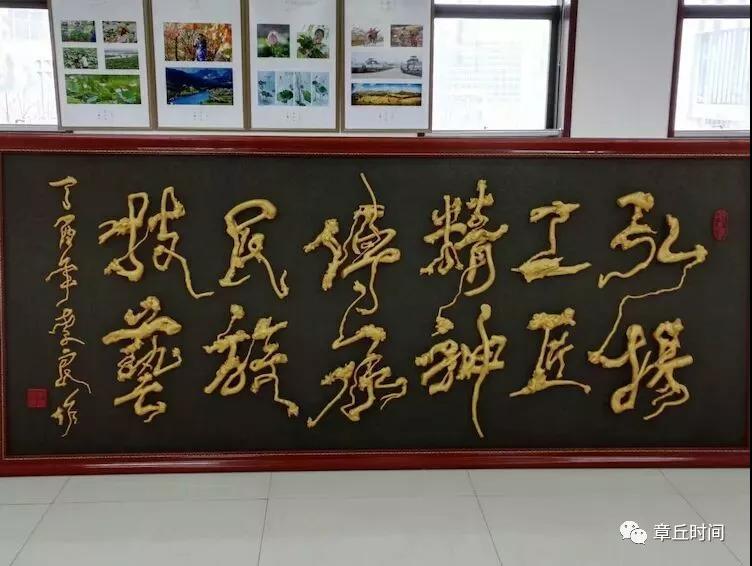 弘揚
工匠
精神
傳承
民族
技藝
丁酉年李良作
章丘时间